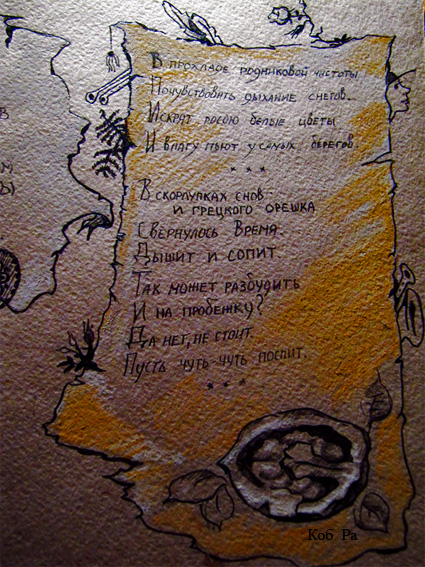 В
М
Ы)
В прохладе родниковой чистоты
Почувствовать дыхание снегов..
Искрят росою белые цветы
И влагу пьют у самых берегов.
* * *
В скорлупках снов
и грецкого орешка
Свернулось Время.
Дышит и сопит.
Так может разбудить
И на пробежку?
Да нет, не стоит.
Пусть чуть-чуть поспит.
* * *
Коб Ра